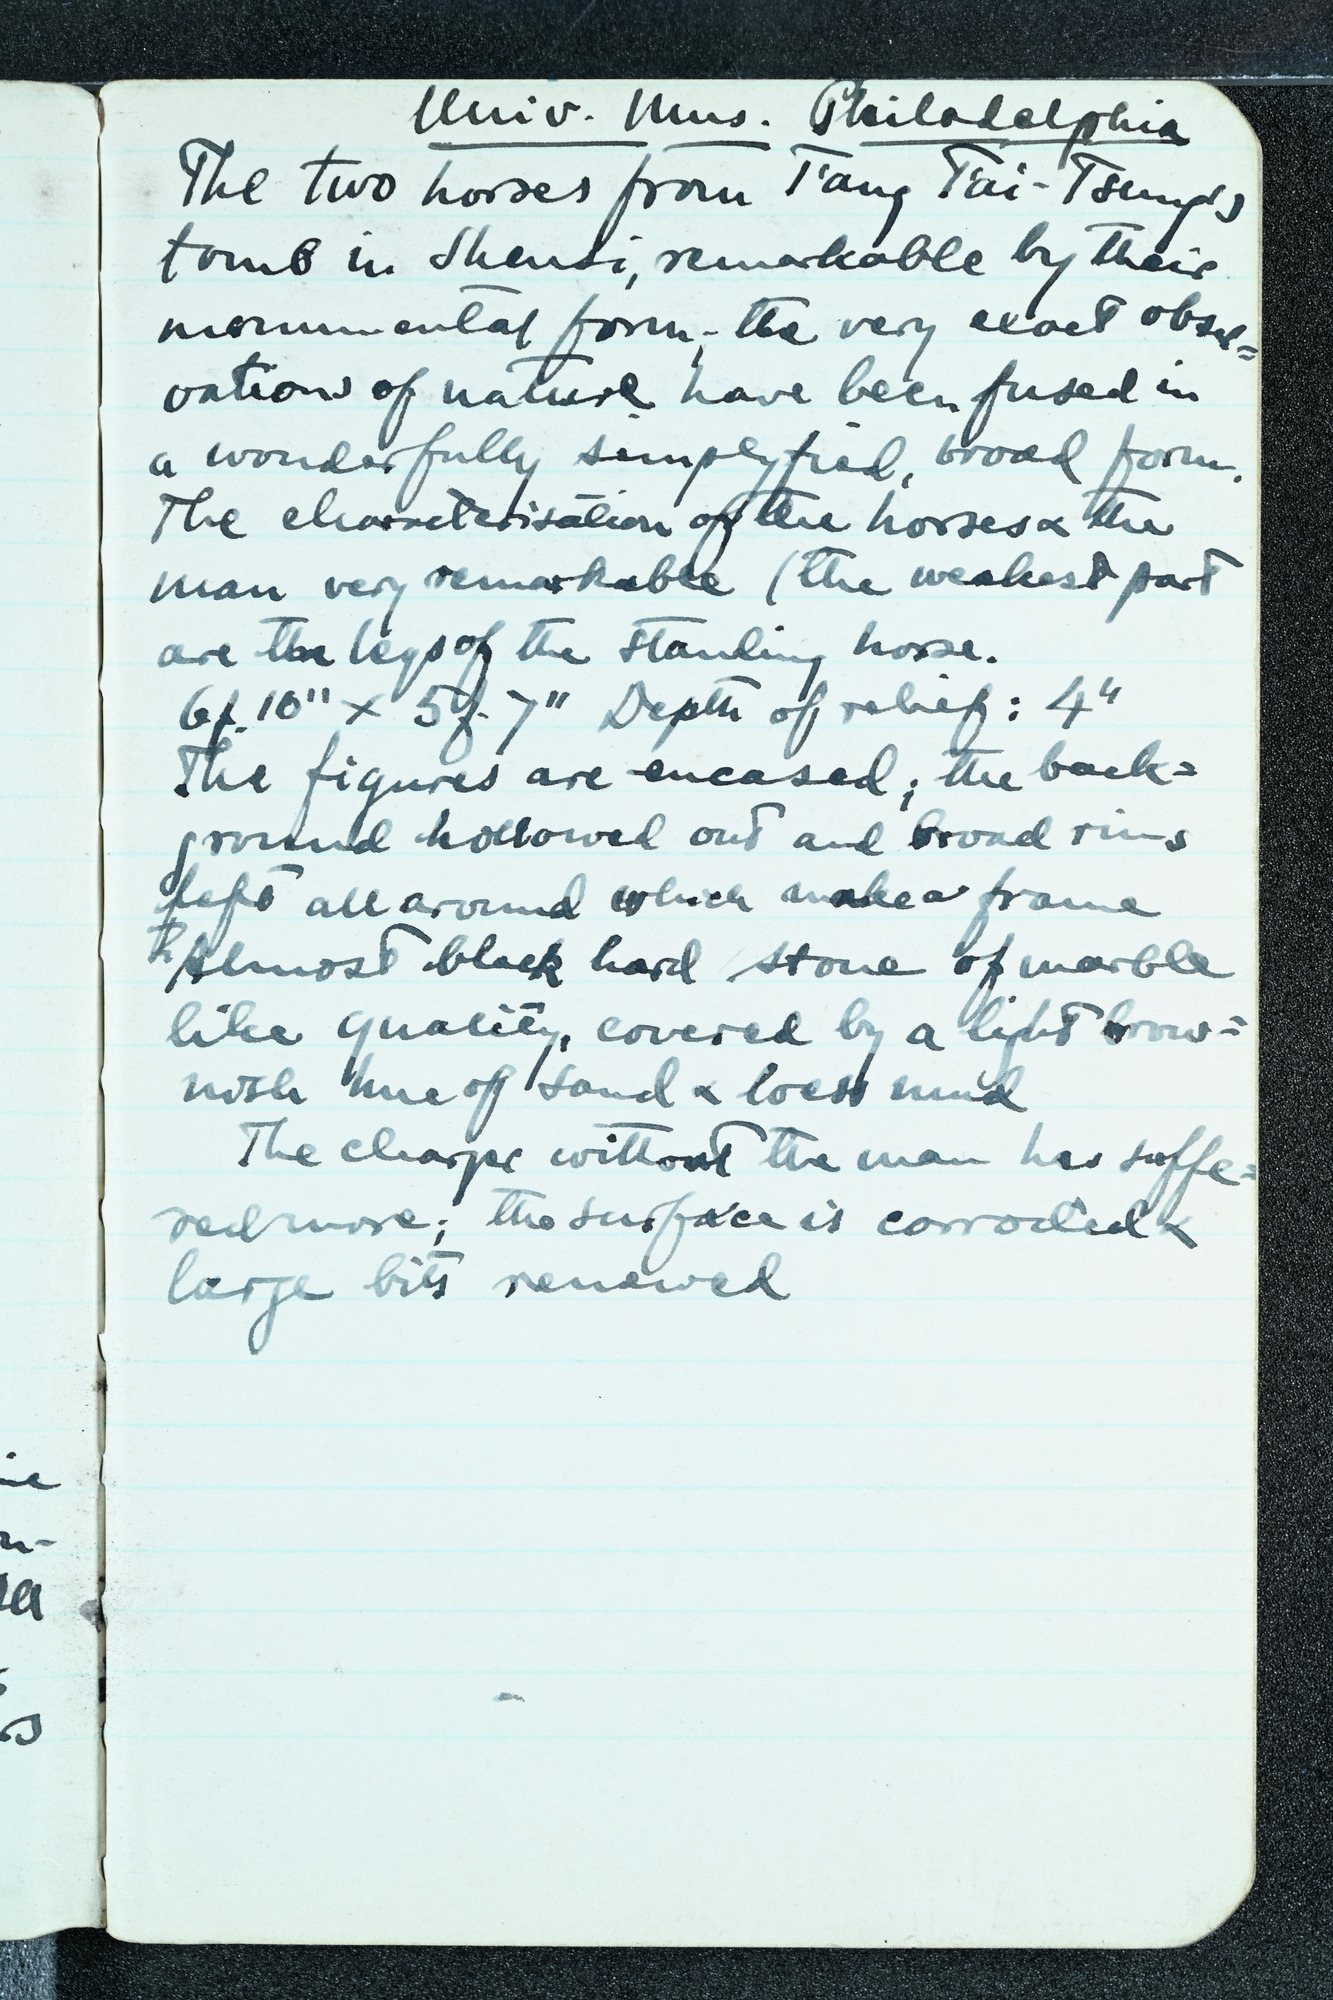 Univ. Mus. Philadelphia
The two horses from T'ang T'ai-Tsung's
tomb in Shensi, remarkable by their
monumental form; the very exact obser=
vations of nature have been fused in
a wonderfully simplyfied, broad form.
The characterisation of the horses & the
man very remarkable (the weakest part
are the legs of the standing horse.
6f. 10" x 5f. 7" Depth of relief: 4"
The figures are encased; the back=
ground hollowed out and broad rims
left all around which make a frame
Almost black hard stone of marble
like quality, covered by a light brow=
nish hue of sand & loess mud
The charge without the man has suffe=
red more; the surface is corroded &
large bits renewed